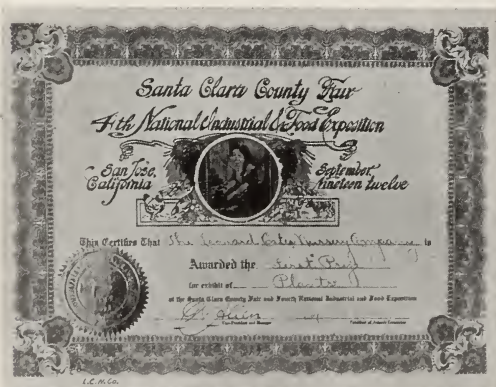 Santa Clara County Fair
4th National Industrial & Food Exposition
San Jose,
California
September
nineteen twelve
This Certifies That The Leonard Coates Nursery Company is
Awarded the First Prize
for exhibit of Plants
at the Santa Clara County Fair and Fourth National Industrial and Food Exposition
Vice-President and Manager
L.C.N.Co.